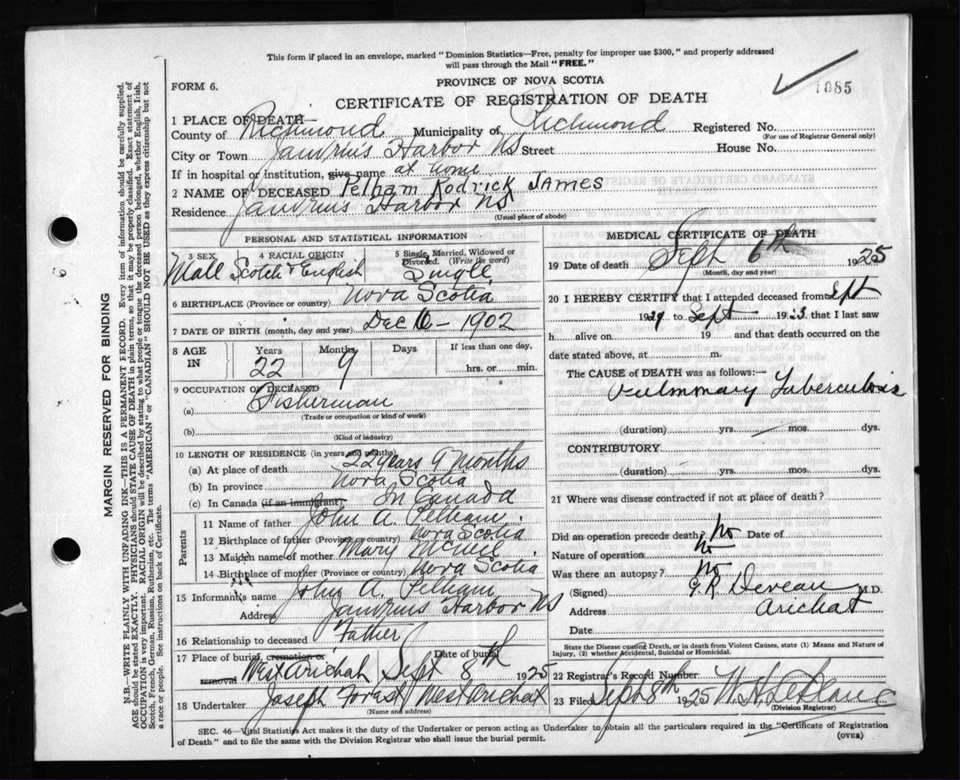 This form if placed in an envelope, marked "Dominion Statistics—Free, penalty for improper use $300," and properly addressed
will pass through the Mail "FREE."
FORM 6.
PROVINCE OF NOVA SCOTIA
1085
CERTIFICATE OF REGISTRATION OF DEATH
1 PLACE OF DEATH—
County of Richmond Municipality of Richmond Registered No.
(For use of Registrar General only)
City or Town Janvrins Harbor NS Street House No.
If in hospital or institution, give name at home
2 NAME OF DECEASED Pelham Rodrick JAMES
Residence Janvrins Harbor NS
(Usual place of abode)
PERSONAL AND STATISTICAL INFORMATION
3 SEX 4 RACIAL ORIGIN 5 Single, Married, Widowed or Divorced. (Write the word)
Male Scotch & English Single
6 BIRTHPLACE (Province or country) Nova Scotia
7 DATE OF BIRTH (month, day and year) Dec 6 - 1902
8 AGE IN Years Months Days If less than one day,
22 9 hrs. or min.
9 OCCUPATION OF DECEASED
(a) Fisherman
(Trade or occupation or kind of work)
(b)
(Kind of industry)
10 LENGTH OF RESIDENCE (in years and months)
(a) At place of death 22 years 9 months
(b) In province Nova Scotia
(c) In Canada (if an immigrant) In Canada
Parents
11 Name of father John A. Pelham
12 Birthplace of father (Province or country) Nova Scotia
13 Maiden name of mother Mary
14 Birthplace of mother (Province or country) Nova Scotia
15 Informant's name John A. Pelham
Address Janvrins Harbor NS
16 Relationship to deceased Father
17 Place of burial, cremation or removal West Arichat Date of burial Sept 8th 1925
18 Undertaker Joseph West Arichat
(Name and address)
MEDICAL CERTIFICATE OF DEATH
19 Date of death Sept 6th 1925
(Month, day and year)
20 I HEREBY CERTIFY that I attended deceased from Sept
19 to Sept 19 that I last saw
h alive on 19 and that death occurred on the
date stated above, at m.
The CAUSE of DEATH was as follows:—
Pulmonary Tuberculosis
(duration) yrs. mos. dys.
CONTRIBUTORY.
(duration) yrs. mos. dys.
21 Where was disease contracted if not at place of death?
Did an operation precede death? No Date of
Nature of operation No
Was there an autopsy? No
(Signed) Deveau M.D.
Address Arichat
Date
State the Disease causing Death, or in death from Violent Causes, state (1) Means and Nature of Injury, (2) whether Accidental, Suicidal or Homicidal.
22 Registrar's Record Number
23 Filed Sept 8th 1925 LeBlanc
(Division Registrar)
SEC. 46—Vital Statistics Act makes it the duty of the Undertaker or person acting as Undertaker to obtain all the particulars required in the "Certificate of Registration
of Death" and to file the same with the Division Registrar who shall issue the burial permit.
(OVER)
MARGIN RESERVED FOR BINDING
N.B.—WRITE PLAINLY WITH UNFADING INK—THIS IS A PERMANENT RECORD. Every item of information should be carefully supplied.
AGE should be stated EXACTLY. PHYSICIANS should STATE CAUSE OF DEATH in plain terms, so that it may be properly classified. Exact statement of
OCCUPATION is very important. RACIAL ORIGIN will be described by stating to what people or tongue the deceased person belonged, whether English, Irish,
Scotch, French, German, Russian, Ruthenian, etc. The terms "AMERICAN" or "CANADIAN" SHOULD NOT BE USED as they express citizenship but not
a race or people. See instructions on back of Certificate.